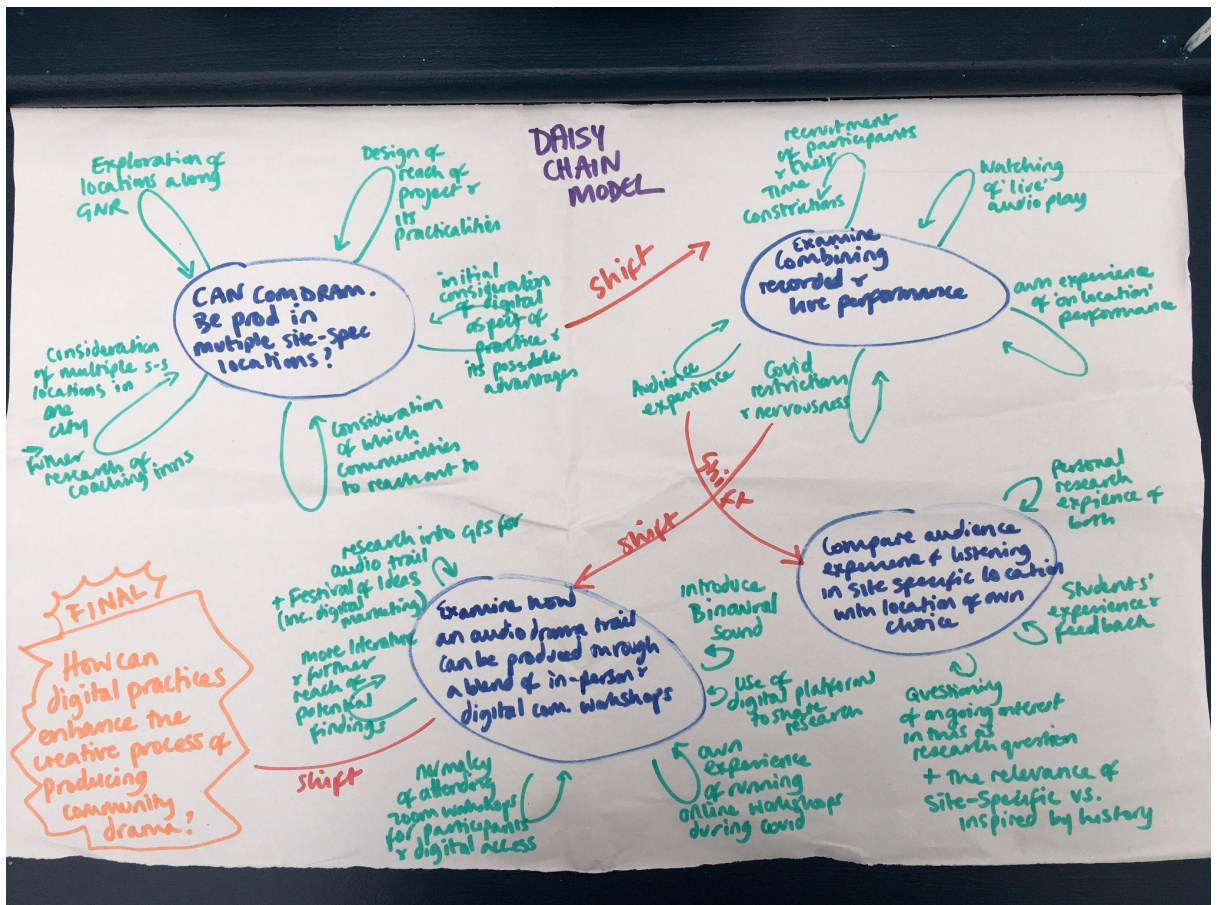 DAISY
CHAIN
MODEL
Exploration of
locations along
GNR
Design of
reach of
project &
its
practicalities
CAN COMDRAM.
Be prod in
multiple site-spec
locations?
initial
consideration
of digital
aspect of
practice &
its possible
advantages
Consideration
of multiple s-s
locations in
one
city
→ Further
research of
coaching inns
Consideration
of which
communities
to reach out to
shift
recruitment
of participants
& their
Time
constrictions
Watching
of 'live'
audio play
Examine
Combining
recorded &
live performance
own experience
of 'on location'
performance
Audience
experience
Covid
restrictions
& nervousness
shift
shift
Compare audience
experience of listening
in site specific location
with location of own
choice
personal
research
expience of
both
Students'
experience &
feedback
Questioning
of ongoing interest
in this as
research question
+ The relevance of
Site-Specific vs.
inspired by history
research into GPS for
audio trail
+ Festival of Ideas
(inc. digital
marketing)
Examine how
an audio drama trail
can be produced through
a blend of in-person &
digital com. workshops
introduce
Binaural
Sound
more literature
& further
reach of
potential
findings
use of
digital platforms
to share
research
normalcy
of attending
zoom workshops
for participants
& digital access
own
experience
of running
online workshops
during covid
shift
FINAL
How can
digital practices
enhance the
creative process of
producing
community
drama?